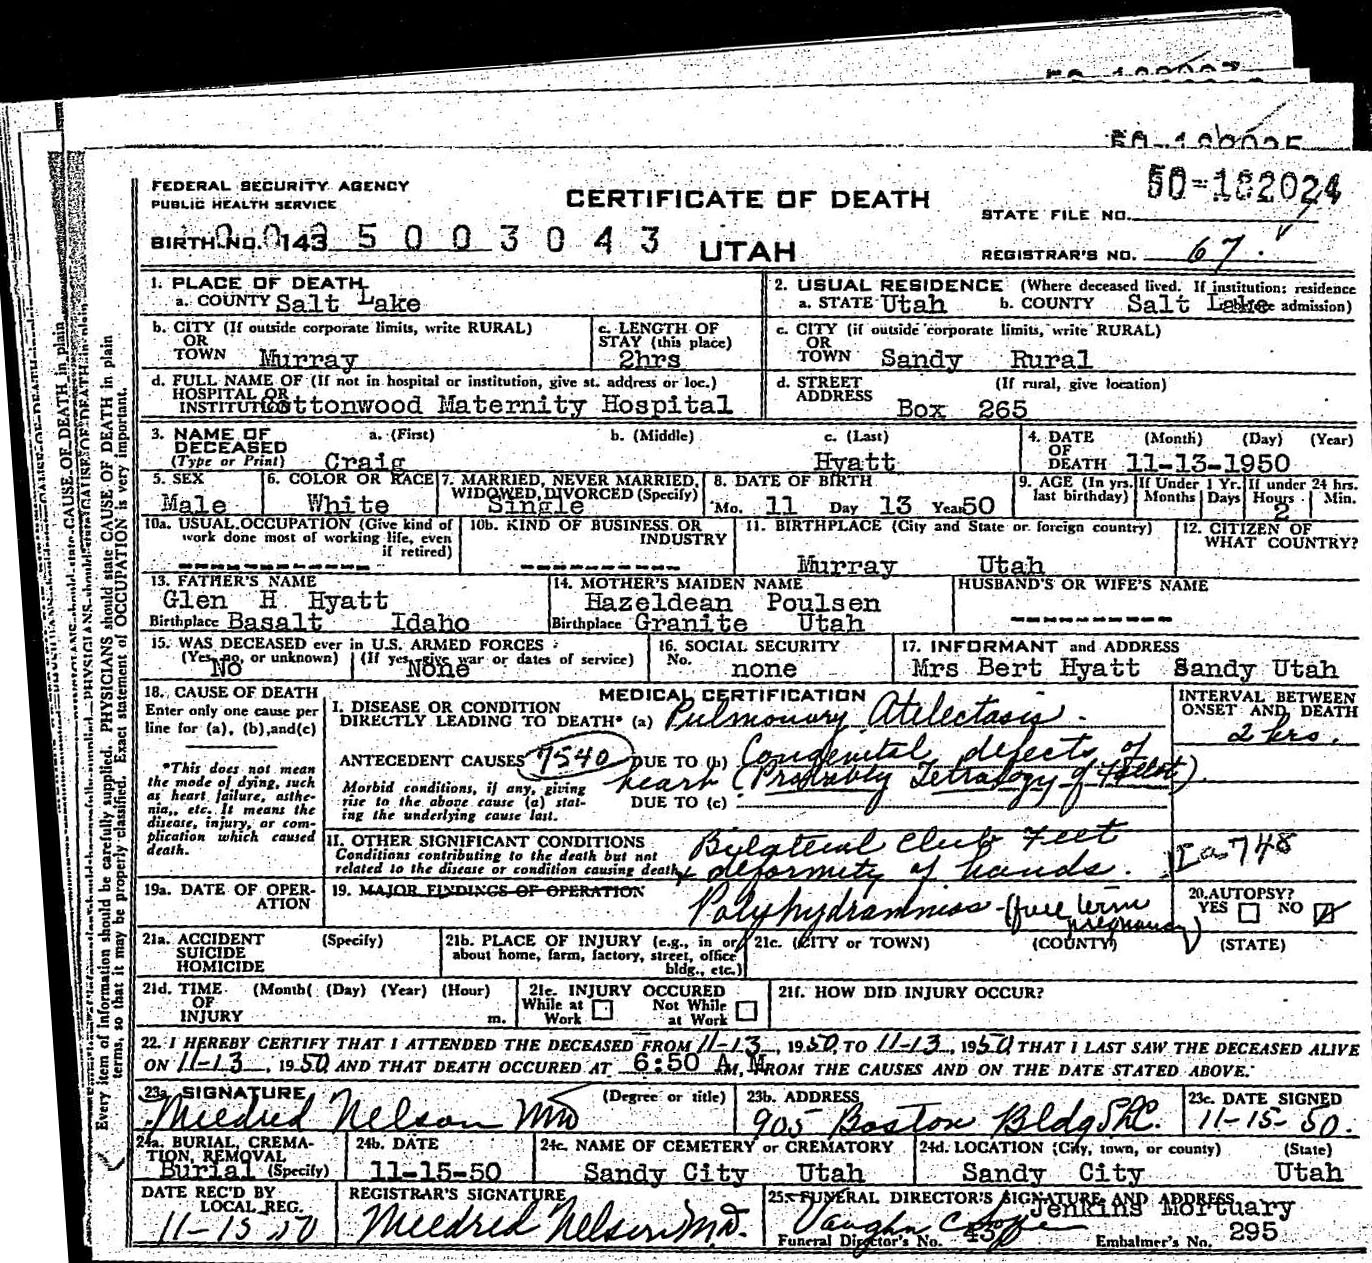 50-182024
FEDERAL SECURITY AGENCY
PUBLIC HEALTH SERVICE
CERTIFICATE OF DEATH
STATE FILE NO.
BIRTH NO. 143 5003043
UTAH
REGISTRAR'S NO. 67
1. PLACE OF DEATH
a. COUNTY Salt Lake
2. USUAL RESIDENCE (Where deceased lived. If institution: residence before admission)
a. STATE Utah b. COUNTY Salt Lake
b. CITY (If outside corporate limits, write RURAL)
OR
TOWN Murray
c. LENGTH OF
STAY (this place)
2hrs
c. CITY (if outside corporate limits, write RURAL)
OR
TOWN Sandy Rural
d. FULL NAME OF (If not in hospital or institution, give st. address or loc.)
HOSPITAL OR
INSTITUTION Cottonwood Maternity Hospital
d. STREET (If rural, give location)
ADDRESS Box 265
3. NAME OF a. (First) b. (Middle) c. (Last)
DECEASED
(Type or Print) Craig Hyatt
4. DATE (Month) (Day) (Year)
OF
DEATH 11-13-1950
5. SEX
Male
6. COLOR OR RACE
White
7. MARRIED, NEVER MARRIED,
WIDOWED, DIVORCED (Specify)
Single
8. DATE OF BIRTH
Mo. 11 Day 13 Year 50
9. AGE (In yrs. last birthday) If Under 1 Yr. Months Days If under 24 hrs. Hours Min.
2
10a. USUAL OCCUPATION (Give kind of
work done most of working life, even
if retired)
10b. KIND OF BUSINESS OR
INDUSTRY
11. BIRTHPLACE (City and State or foreign country)
Murray Utah
12. CITIZEN OF
WHAT COUNTRY?
13. FATHER'S NAME
Glen H Hyatt
Birthplace Basalt Idaho
14. MOTHER'S MAIDEN NAME
Hazeldean Poulsen
Birthplace Granite Utah
HUSBAND'S OR WIFE'S NAME
15. WAS DECEASED ever in U.S. ARMED FORCES
(Yes, no, or unknown) (If yes, give war or dates of service)
No None
16. SOCIAL SECURITY
No. none
17. INFORMANT and ADDRESS
Mrs Bert Hyatt Sandy Utah
18. CAUSE OF DEATH
Enter only one cause per
line for (a), (b), and (c)
*This does not mean
the mode of dying, such
as heart failure, asthe-
nia, etc. It means the
disease, injury, or com-
plication which caused
death.
MEDICAL CERTIFICATION
I. DISEASE OR CONDITION
DIRECTLY LEADING TO DEATH* (a) Pulmonary Atelectasis.
ANTECEDENT CAUSES 7540 DUE TO (b) Congenital defects of
heart (Probably Tetralogy of Fallot)
Morbid conditions, if any, giving
rise to the above cause (a) stat-
ing the underlying cause last.
DUE TO (c)
INTERVAL BETWEEN
ONSET AND DEATH
2 hrs.
II. OTHER SIGNIFICANT CONDITIONS
Conditions contributing to the death but not
related to the disease or condition causing death
Bilateral Club Feet
+ deformity of hands.
748
19a. DATE OF OPER-
ATION
19. MAJOR FINDINGS OF OPERATION
Polyhydramnios (full term
pregnancy)
20. AUTOPSY?
YES NO
21a. ACCIDENT (Specify)
SUICIDE
HOMICIDE
21b. PLACE OF INJURY (e.g., in or
about home, farm, factory, street, office
bldg., etc.)
21c. (CITY or TOWN) (COUNTY) (STATE)
21d. TIME (Month) (Day) (Year) (Hour)
OF
INJURY m.
21e. INJURY OCCURED
While at Work Not While at Work
21f. HOW DID INJURY OCCUR?
22. I HEREBY CERTIFY THAT I ATTENDED THE DECEASED FROM 11-13, 1950, TO 11-13, 1950 THAT I LAST SAW THE DECEASED ALIVE
ON 11-13, 1950 AND THAT DEATH OCCURED AT 6:50 A.M, FROM THE CAUSES AND ON THE DATE STATED ABOVE.
23a. SIGNATURE (Degree or title)
Mildred Nelson MD
23b. ADDRESS
905 Boston Bldg SLC.
23c. DATE SIGNED
11-15-50.
24a. BURIAL, CREMA-
TION, REMOVAL
Burial (Specify)
24b. DATE
11-15-50
24c. NAME OF CEMETERY or CREMATORY
Sandy City Utah
24d. LOCATION (City, town, or county) (State)
Sandy City Utah
DATE REC'D BY
LOCAL REG.
11-15-50
REGISTRAR'S SIGNATURE
Mildred Nelson M.D.
25. FUNERAL DIRECTOR'S SIGNATURE AND ADDRESS
Jenkins Mortuary
Vaughn
Funeral Director's No. Embalmer's No. 295
Every item of information should be carefully supplied. PHYSICIANS should state CAUSE OF DEATH in plain
terms, so that it may be properly classified. Exact statement of OCCUPATION is very important.